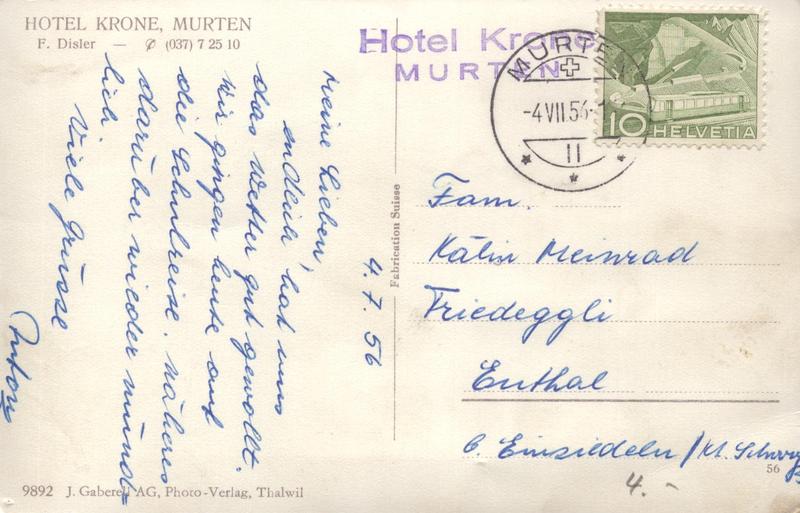 HOTEL KRONE, MURTEN
F. Disler — ✆ (037) 7 25 10
Hotel Krone
MURTEN
MURTEN
-4.VII.56-1
11
10 HELVETIA
4.7.56
Meine Lieben,
endlich hat uns
das Wetter gut gewollt.
Wir gingen heute auf
die Schulreise. Näheres
darüber wieder münd=
lich.
Viele Grüsse
Anton
Fabrication Suisse
Fam.
Kälin Meinrad
Friedeggli
Euthal
b. Einsiedeln/Kt. Schwyz
56
4.-
9892 J. Gaberell AG, Photo-Verlag, Thalwil